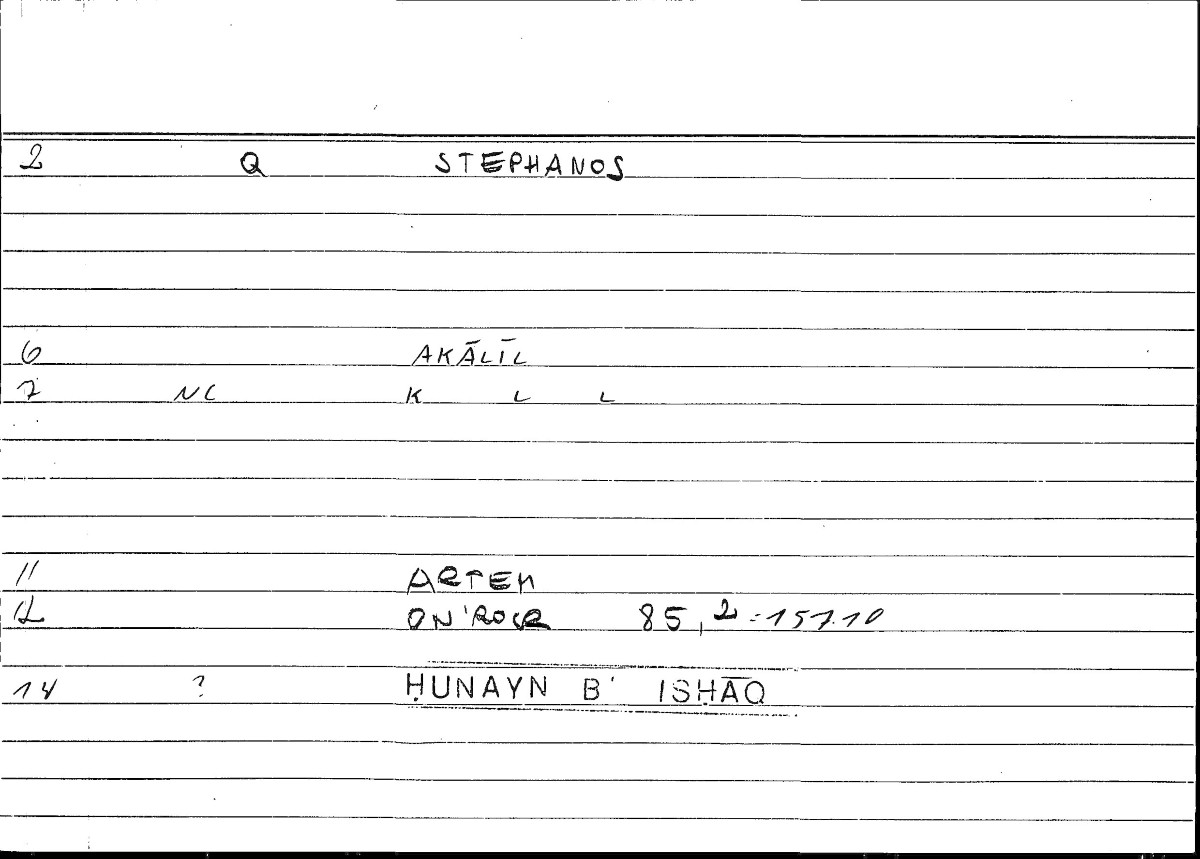 2 Q STEPHANOS
6 AKĀLĪL
7 NC K L L
11 ARTEM
12 ON'ROCR 85, 2 = 157.10
14 ? ḤUNAYN B' ISḤĀQ